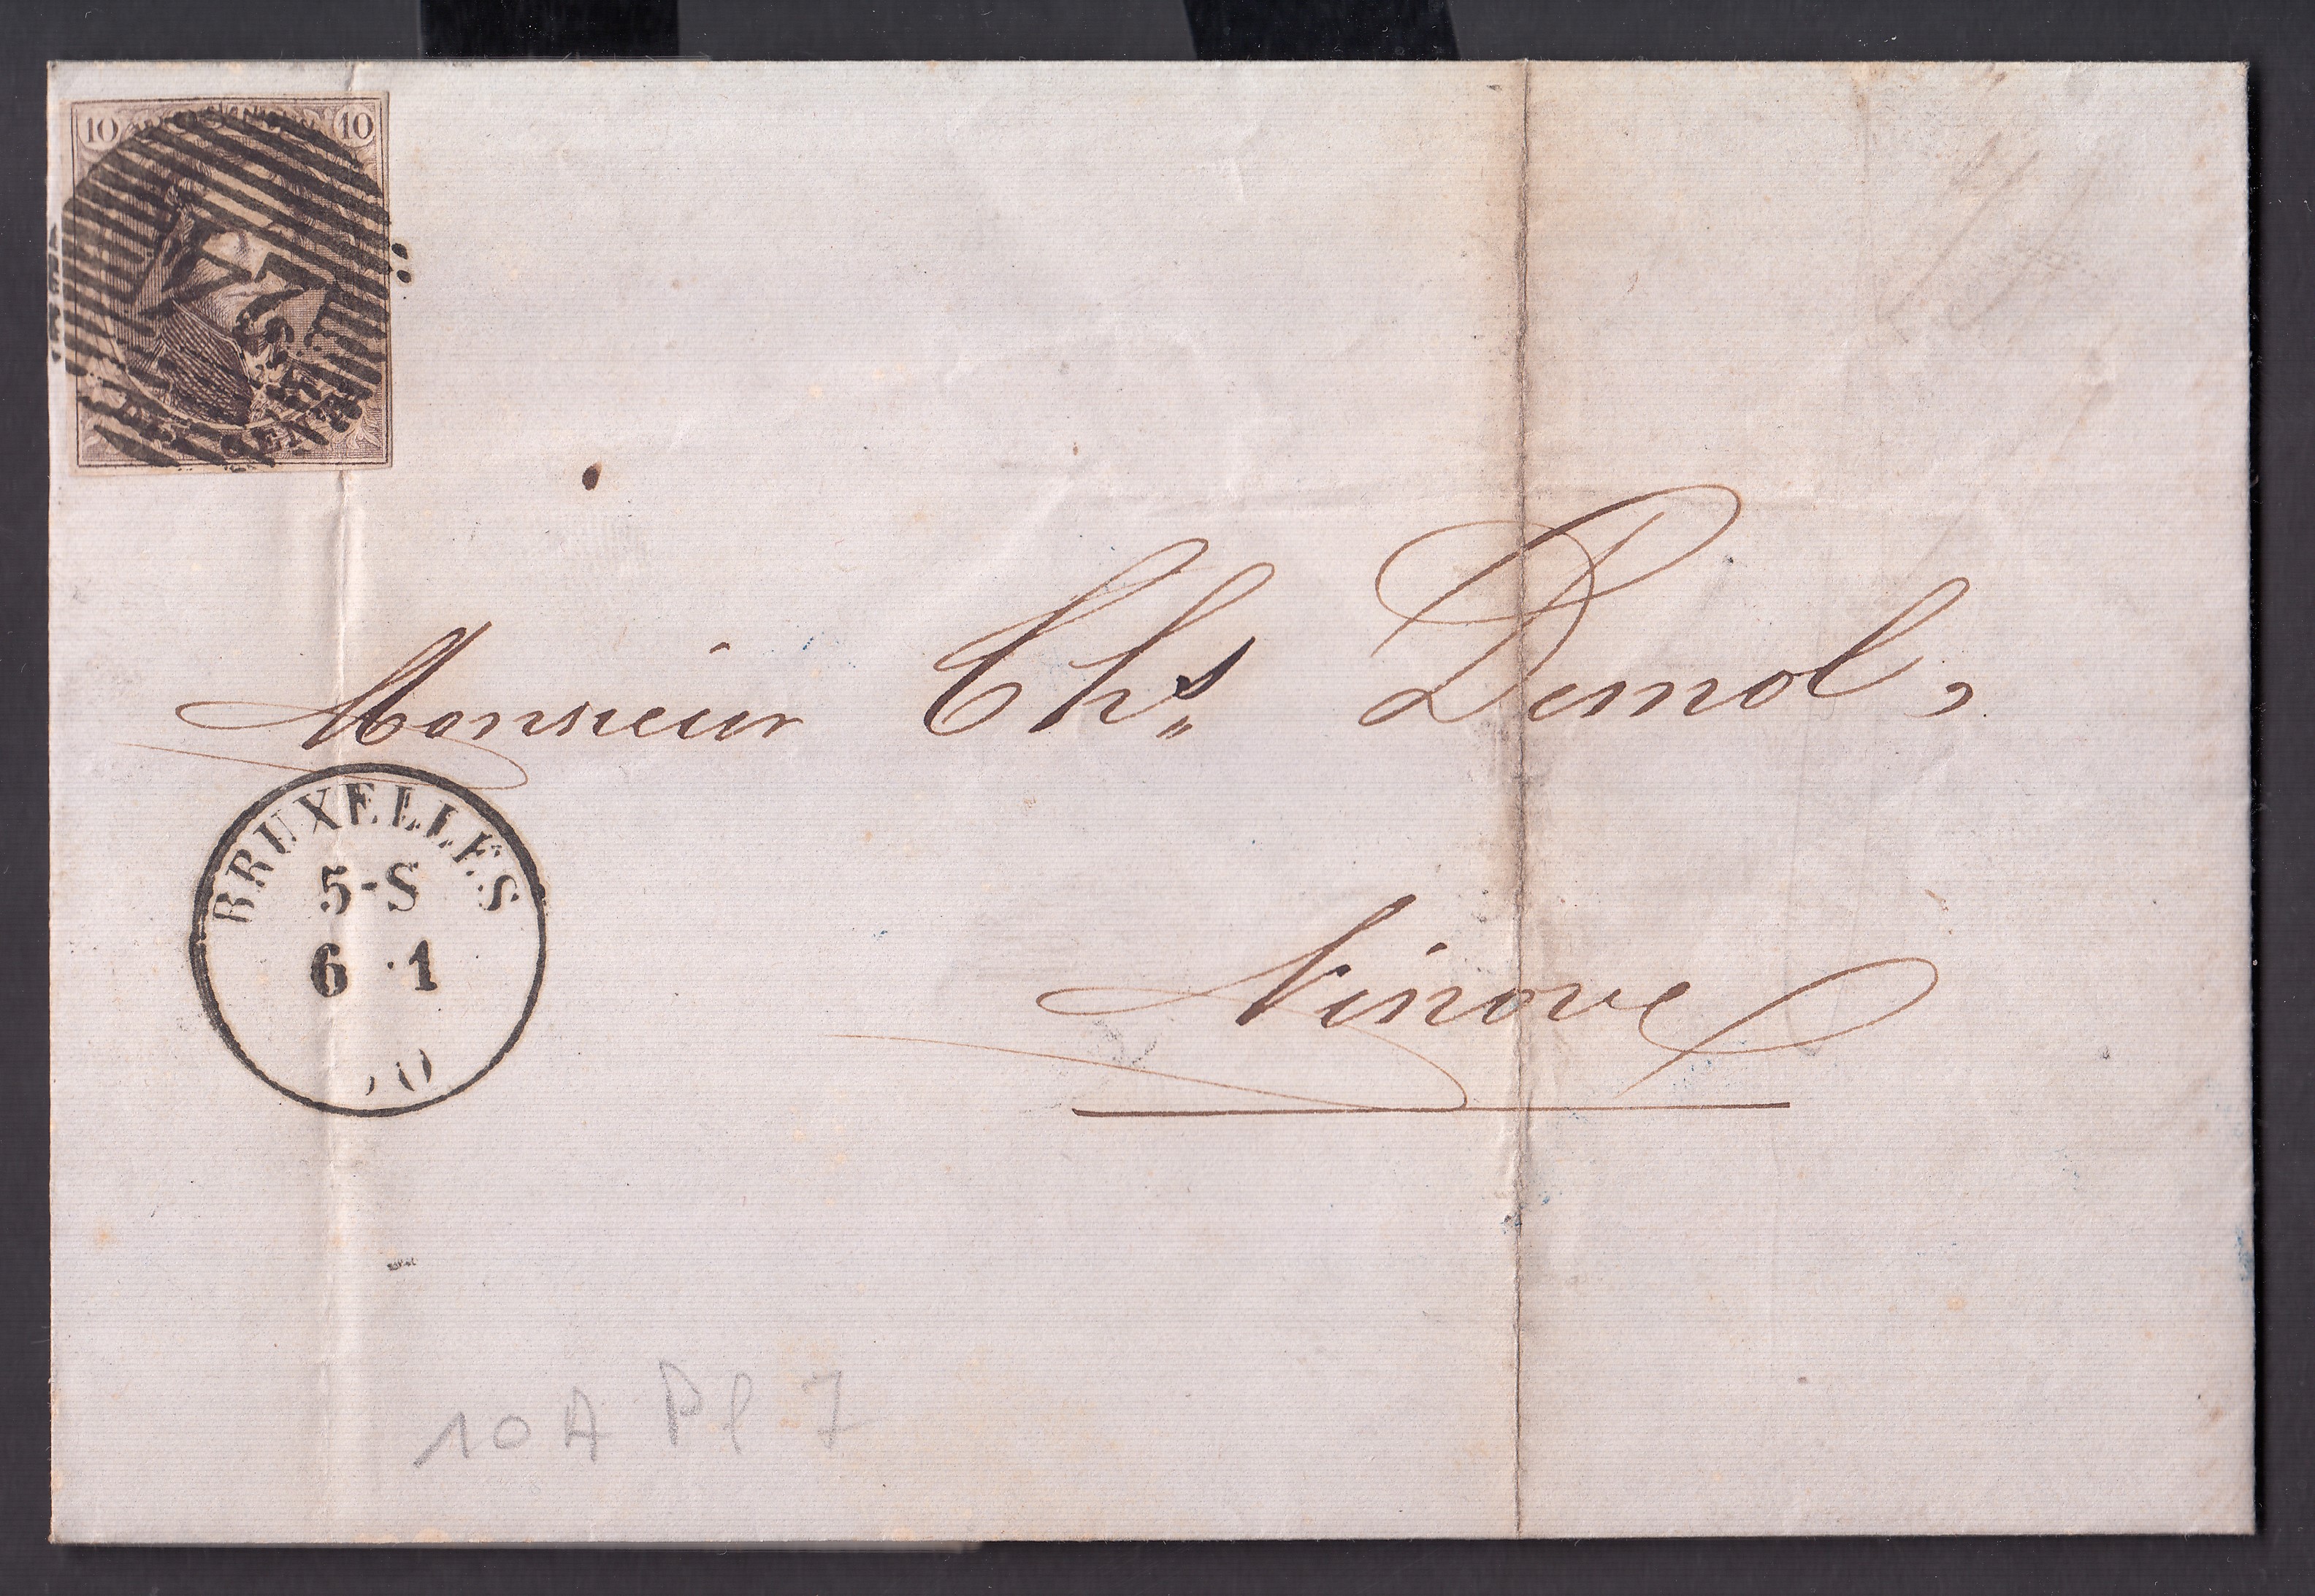 10 10
DIX CENTS
Monsieur Chs Demol,
BRUXELLES
5-S
6 · 1
Ninove
10 A Pl 7